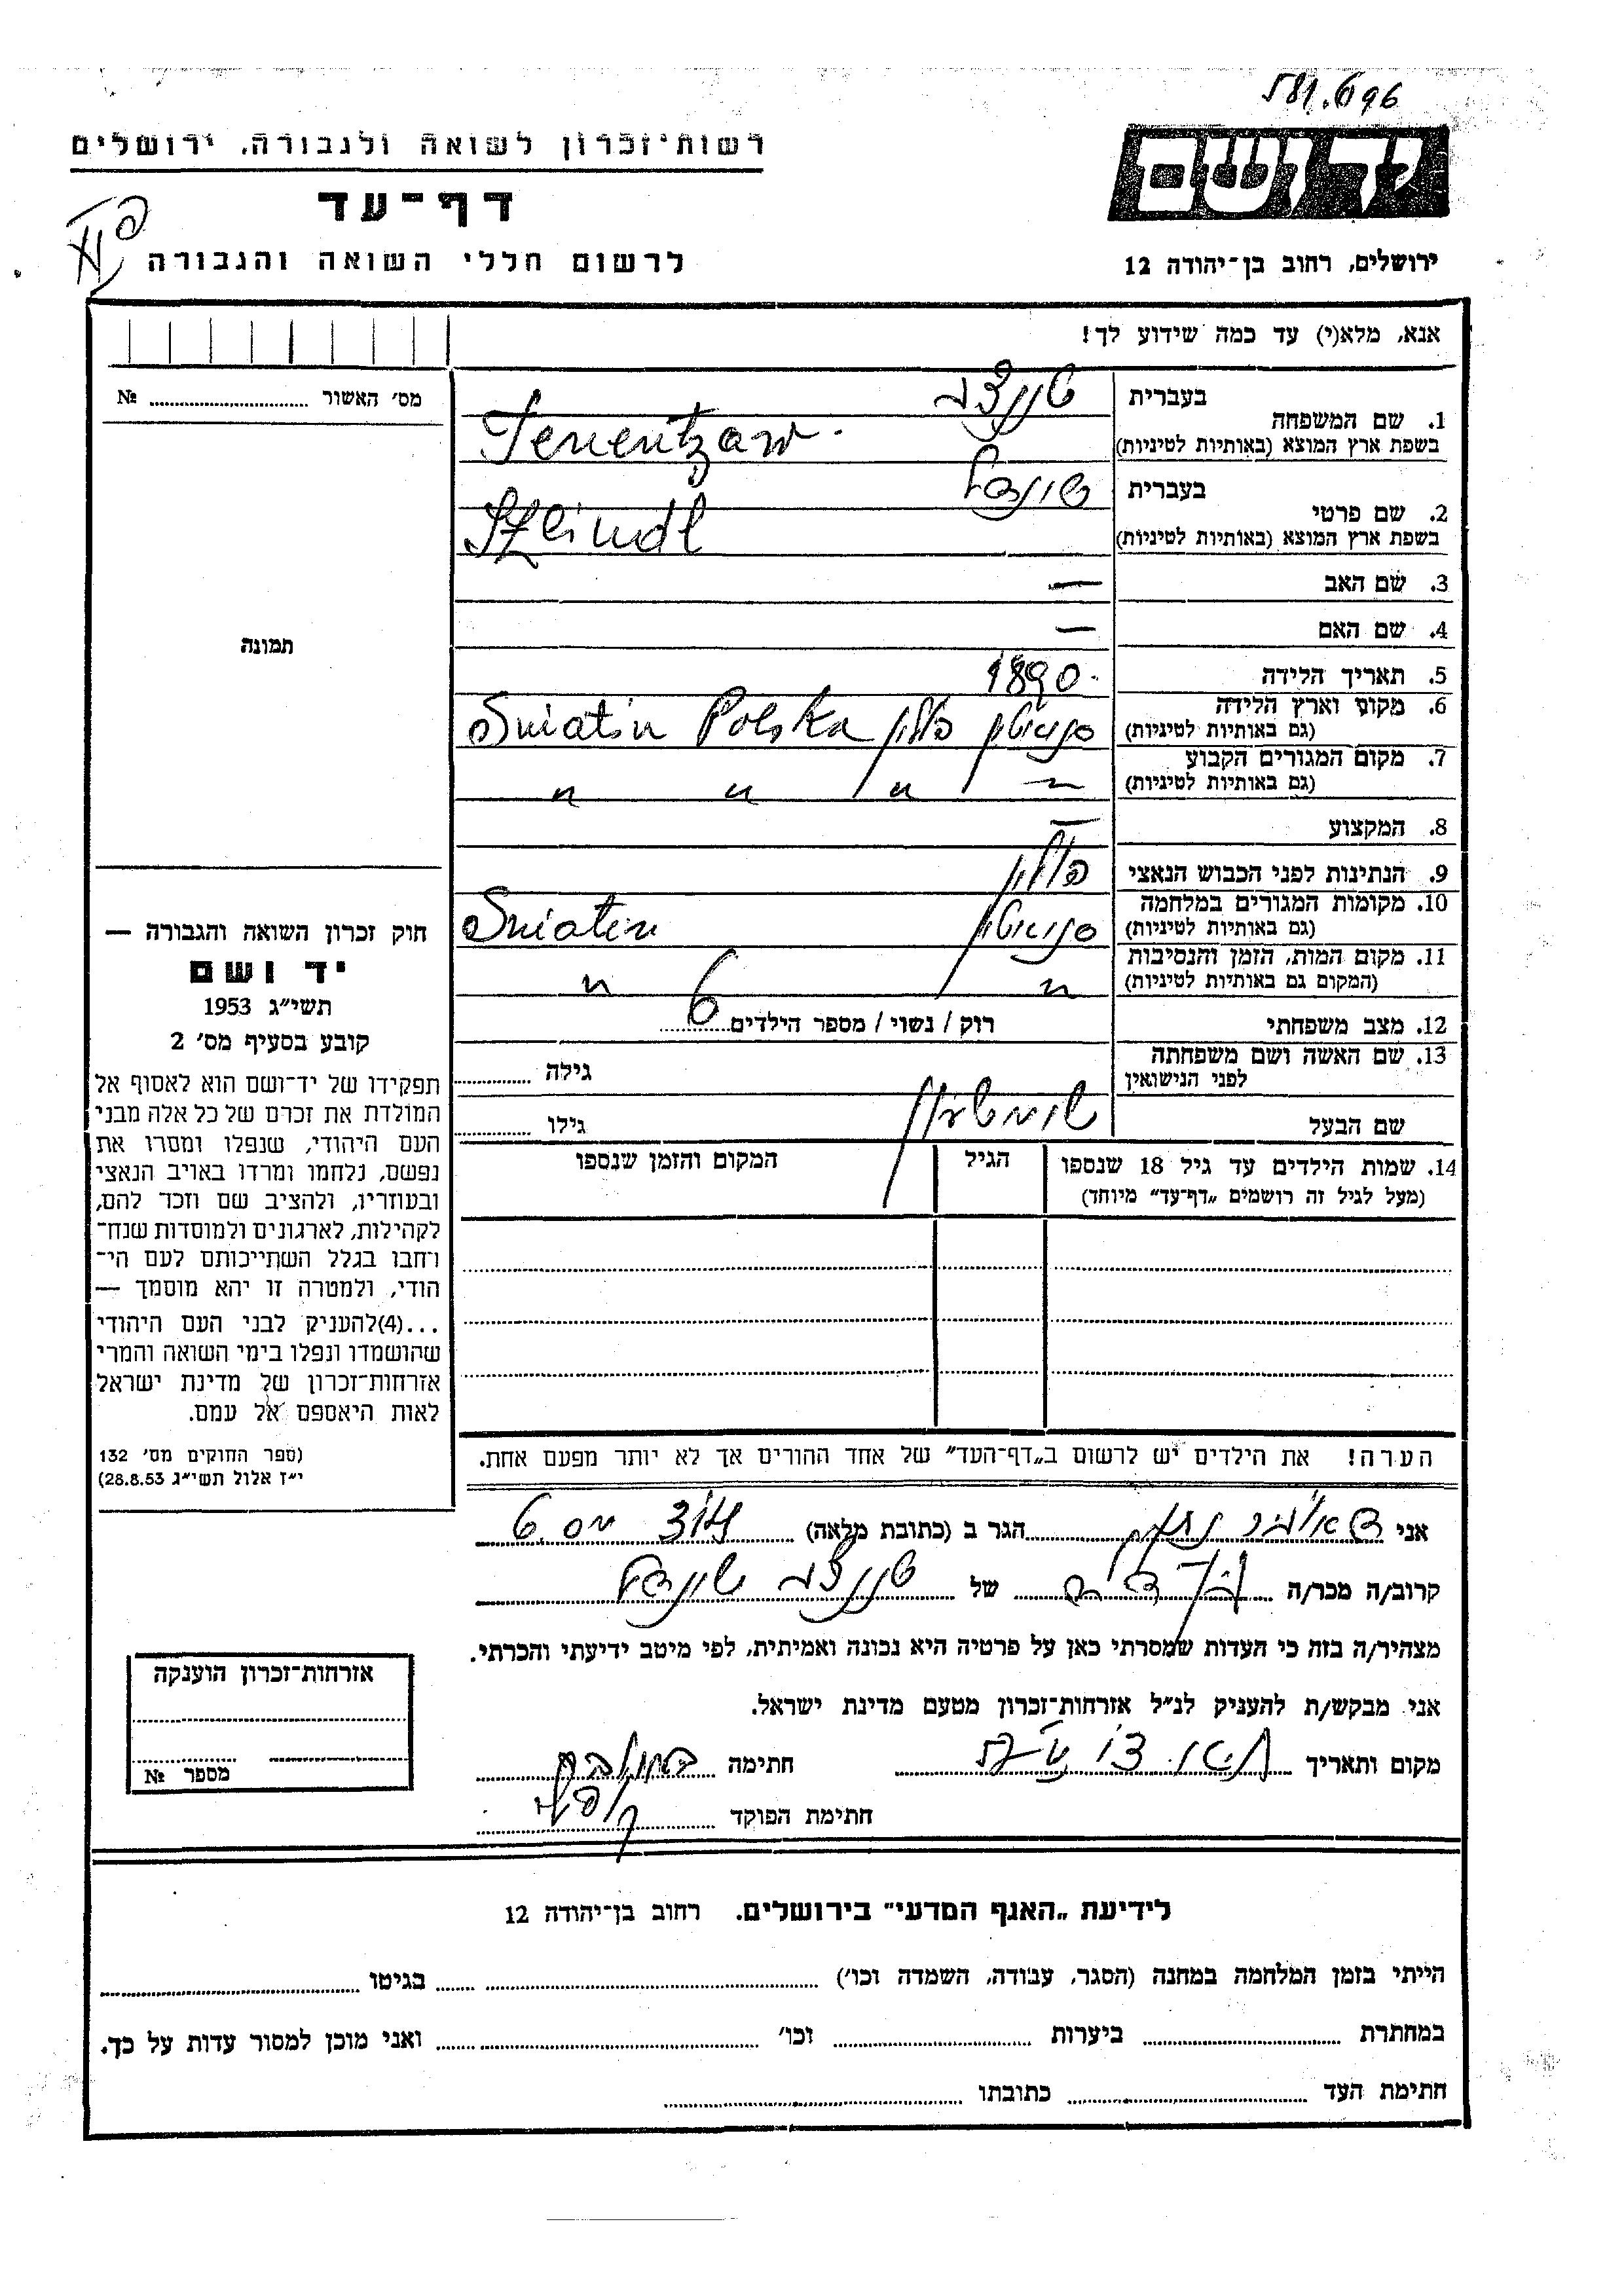 581.696
רשות־זכרון לשואה ולגבורה, ירושלים
יד ושם
דף־עד
לרשום חללי השואה והגבורה
ירושלים, רחוב בן־יהודה 12
אנא, מלא(י) עד כמה שידוע לך!
מס׳ האשור № 
1. שם המשפחה
בעברית
בשפת ארץ המוצא (באותיות לטיניות)
2. שם פרטי
בעברית שיינדל
בשפת ארץ המוצא (באותיות לטיניות) Szeindl
3. שם האב —
4. שם האם —
תמונה
5. תאריך הלידה 1890
6. מקום וארץ הלידה סניאטין פולין Sniatin Polska
(גם באותיות לטיניות)
7. מקום המגורים הקבוע " " " "
(גם באותיות לטיניות)
8. המקצוע —
9. הנתינות לפני הכבוש הנאצי פולין
10. מקומות המגורים במלחמה סניאטין Sniatin
(גם באותיות לטיניות)
11. מקום המות, הזמן והנסיבות " "
(המקום גם באותיות לטיניות)
12. מצב משפחתי רוק / נשוי / מספר הילדים 6
13. שם האשה ושם משפחתה גילה
לפני הנישואין
שם הבעל גילו
14. שמות הילדים עד גיל 18 שנספו הגיל המקום והזמן שנספו
(מעל לגיל זה רושמים „דף־עד” מיוחד)
הערה! את הילדים יש לרשום ב„דף־העד” של אחד ההורים אך לא יותר מפעם אחת.
חוק זכרון השואה והגבורה —
יד ושם
תשי״ג 1953
קובע בסעיף מס׳ 2
תפקידו של יד־ושם הוא לאסוף אל
המולדת את זכרם של כל אלה מבני
העם היהודי, שנפלו ומסרו את
נפשם, נלחמו ומרדו באויב הנאצי
ובעוזריו, ולהציב שם וזכר להם,
לקהילות, לארגונים ולמוסדות שנח־
רחבו בגלל השתייכותם לעם הי־
הודי, ולמטרה זו יהא מוסמך —
...(4)להעניק לבני העם היהודי
שהושמדו ונפלו בימי השואה והמרי
אזרחות־זכרון של מדינת ישראל
לאות היאספם אל עמם.
(ספר החוקים מס׳ 132
י״ז אלול תשי״ג 28.8.53)
אני הגר ב (כתובת מלאה)
קרוב/ה מכר/ה של שיינדל
מצהיר/ה בזה כי העדות שמסרתי כאן על פרטיה היא נכונה ואמיתית, לפי מיטב ידיעתי והכרתי.
אני מבקש/ת להעניק לנ״ל אזרחות־זכרון מטעם מדינת ישראל.
מקום ותאריך חתימה
חתימת הפוקד
אזרחות־זכרון הוענקה
מספר №
לידיעת „האגף המדעי” בירושלים. רחוב בן־יהודה 12
הייתי בזמן המלחמה במחנה (הסגר, עבודה, השמדה וכו׳) בגיטו
במחתרת ביערות וכו׳ ואני מוכן למסור עדות על כך.
חתימת העד כתובתו